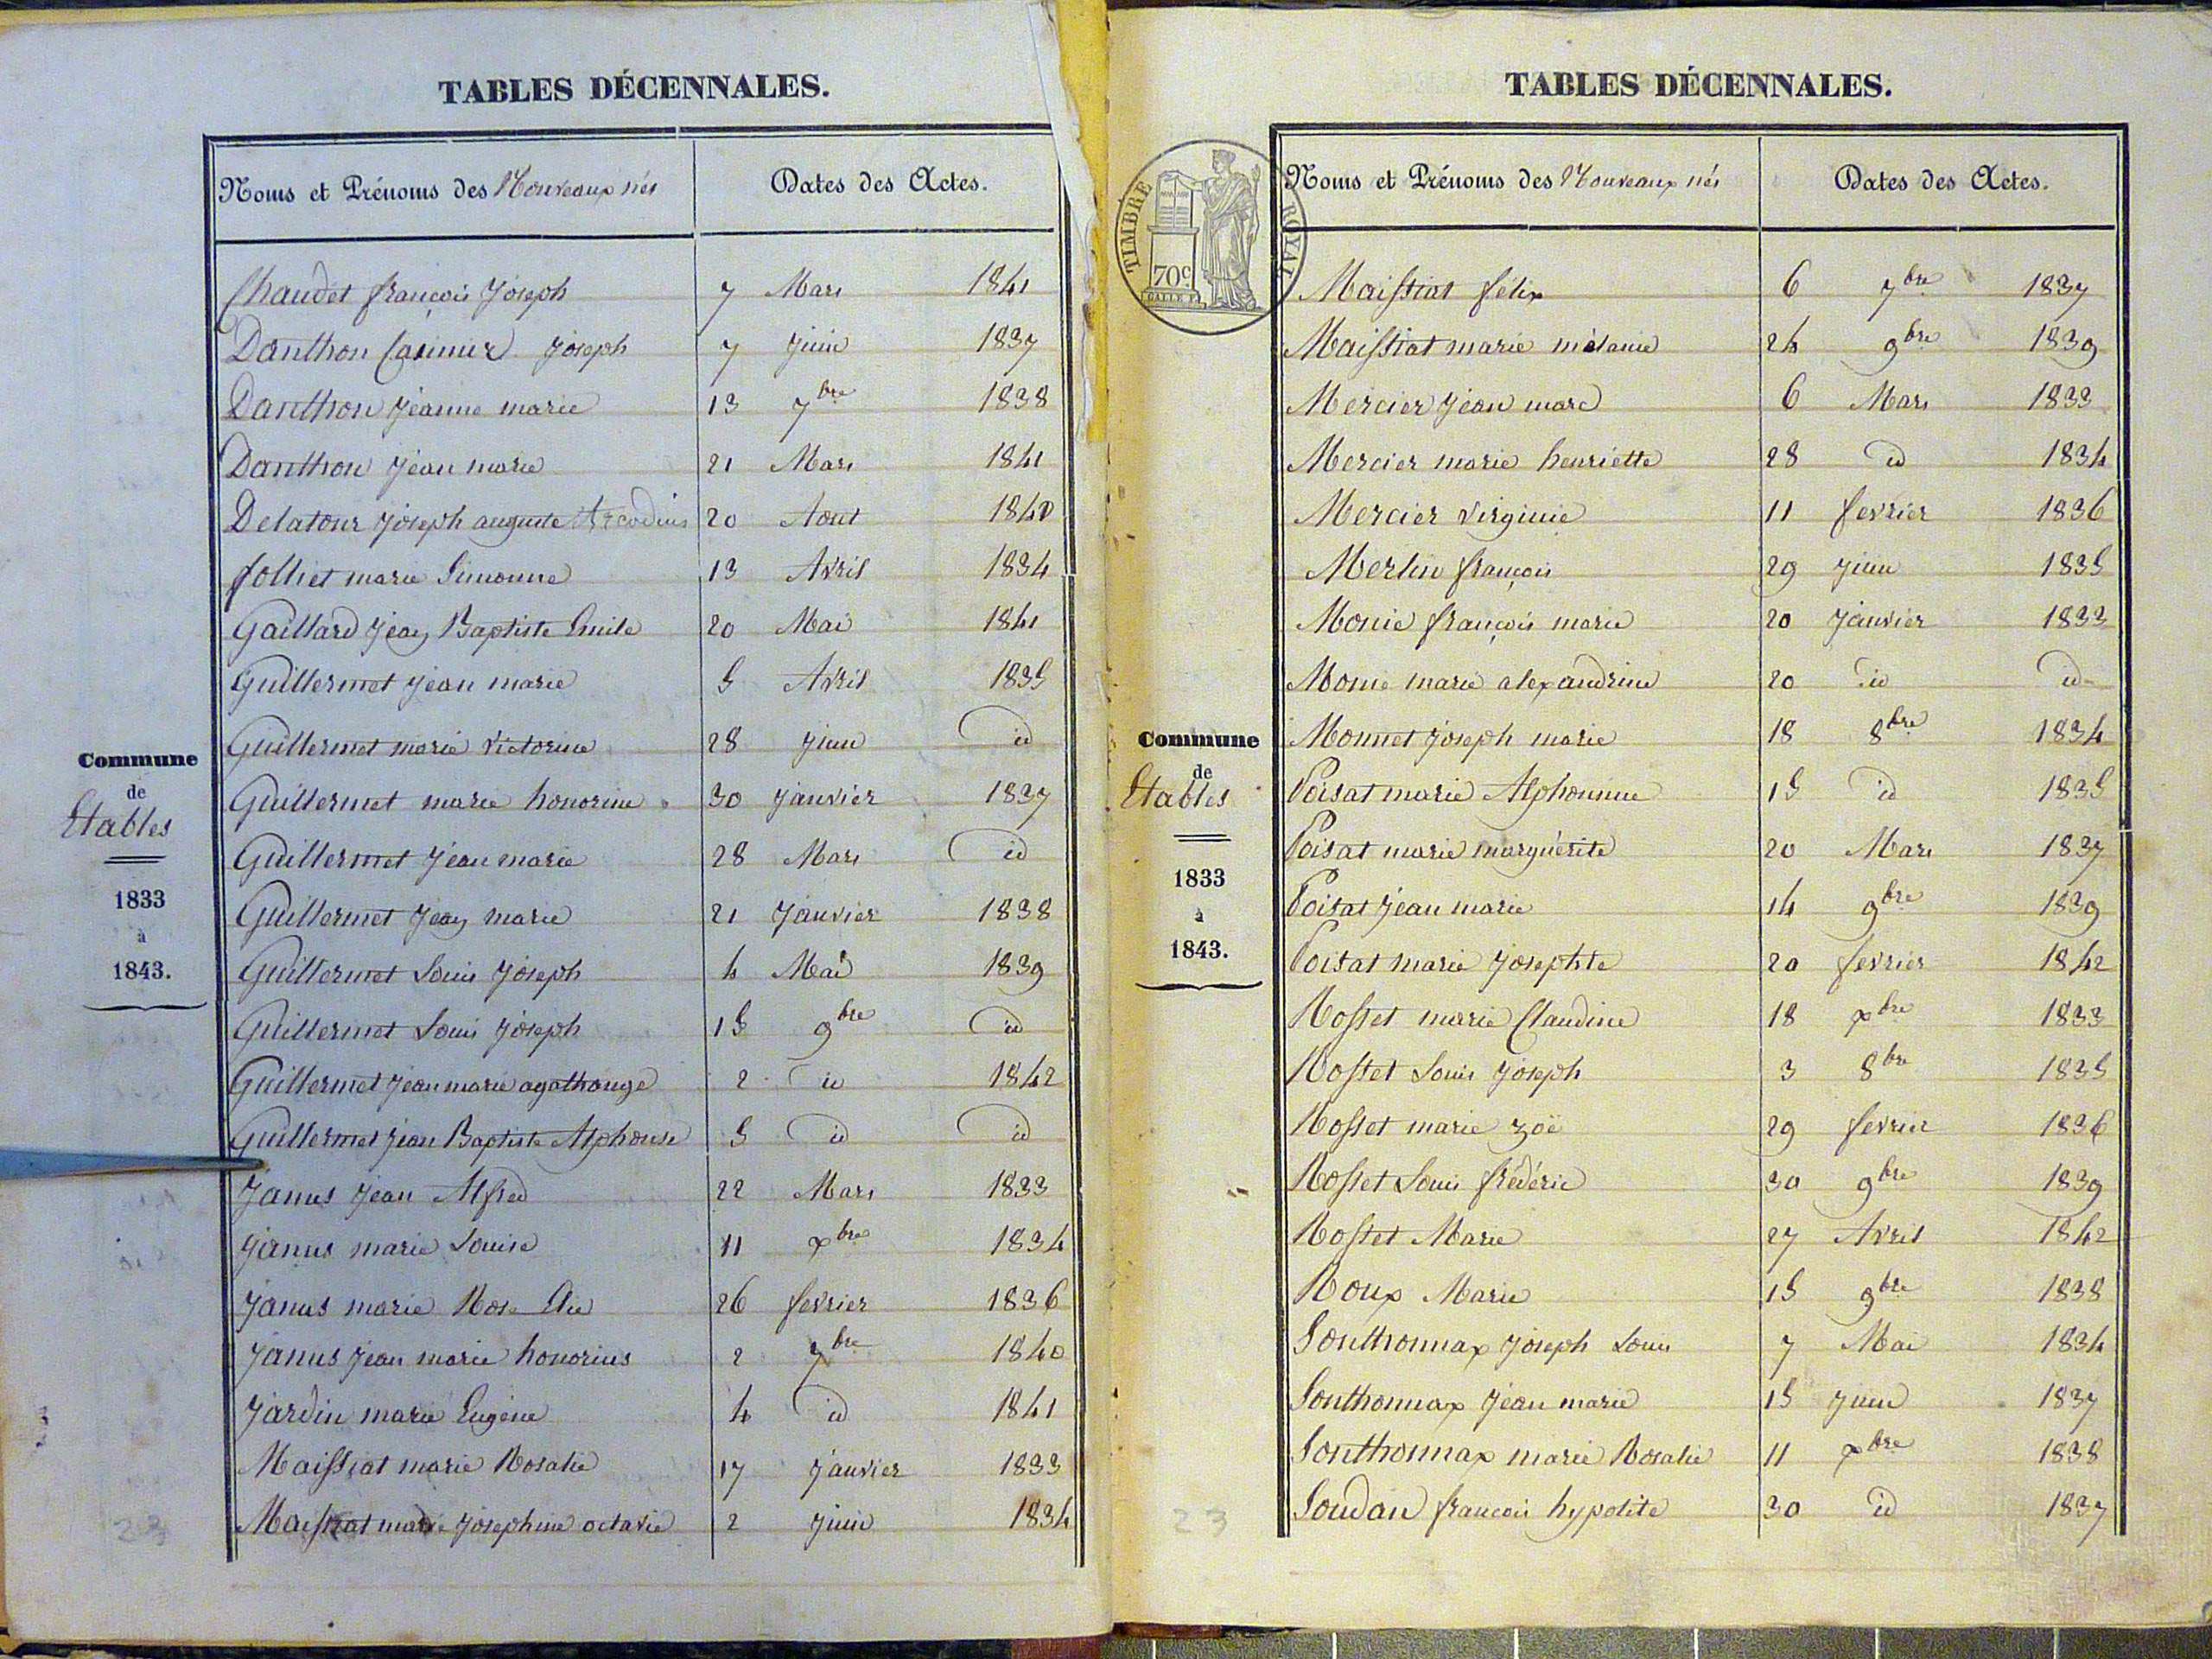 TABLES DÉCENNALES.
Noms et Prénoms des Nouveaux nés Dates des Actes.
Chaudet françois Joseph 7 Mars 1841
Danthon Casimir Joseph 7 Juin 1837
Danthon Jeanne marie 13 7bre 1838
Danthon Jean marie 21 Mars 1841
Delatour Joseph auguste Arcadius 20 Aout 1840
folliet marie Simonne 13 Avril 1834
Gaillard Jean Baptiste Emile 20 Mai 1841
Guillermet Jean marie 5 Avril 1835
Guillermet marie Victorine 28 Juin id
Guillermet marie honorine 30 Janvier 1837
Guillermet Jean marie 28 Mars id
Guillermet Jean marie 21 Janvier 1838
Guillermet Louis Joseph 4 Mai 1839
Guillermet Louis Joseph 15 9bre id
Guillermet Jean marie agathange 2 id 1842
Guillermet Jean Baptiste Alphonse 5 id id
Janus Jean Alfred 22 Mars 1833
Janus marie Louise 11 xbre 1834
Janus marie Rose 26 fevrier 1836
Janus Jean marie honorius 2 7bre 1840
Jardin marie Eugene 4 id 1841
Maissiat marie Rosalie 17 Janvier 1833
Maissiat marie Josephine octavie 2 Juin 1834
Commune
de
Etables
1833
à
1843.
23
TABLES DÉCENNALES.
TIMBRE ROYAL
70c
Noms et Prénoms des Nouveaux nés Dates des Actes.
Maissiat félix 6 7bre 1837
Maissiat marie mélanie 24 9bre 1839
Mercier Jean marc 6 Mars 1833
Mercier marie henriette 28 id 1834
Mercier Virginie 11 fevrier 1836
Merlin françois 29 Juin 1835
Monié françois marie 20 Janvier 1833
Monié marie alexandrine 20 id id
Monnet Joseph marie 18 8bre 1834
Poisat marie Alphonsine 15 id 1835
Poisat marie marguérite 20 Mars 1837
Poisat Jean marie 14 9bre 1839
Poisat marie Josephte 20 fevrier 1842
Rosset marie Claudine 18 xbre 1833
Rosset Louis Joseph 3 8bre 1835
Rosset marie zoë 29 fevrier 1836
Rosset Louis frédéric 30 9bre 1839
Rosset Marie 27 Avril 1842
Roux Marie 15 9bre 1838
Sonthonnax Joseph Louis 7 Mai 1834
Sonthonnax Jean marie 15 Juin 1837
Sonthonnax marie Rosalie 11 xbre 1838
Soudan francois hypolite 30 id 1837
Commune
de
Etables
1833
à
1843.
23